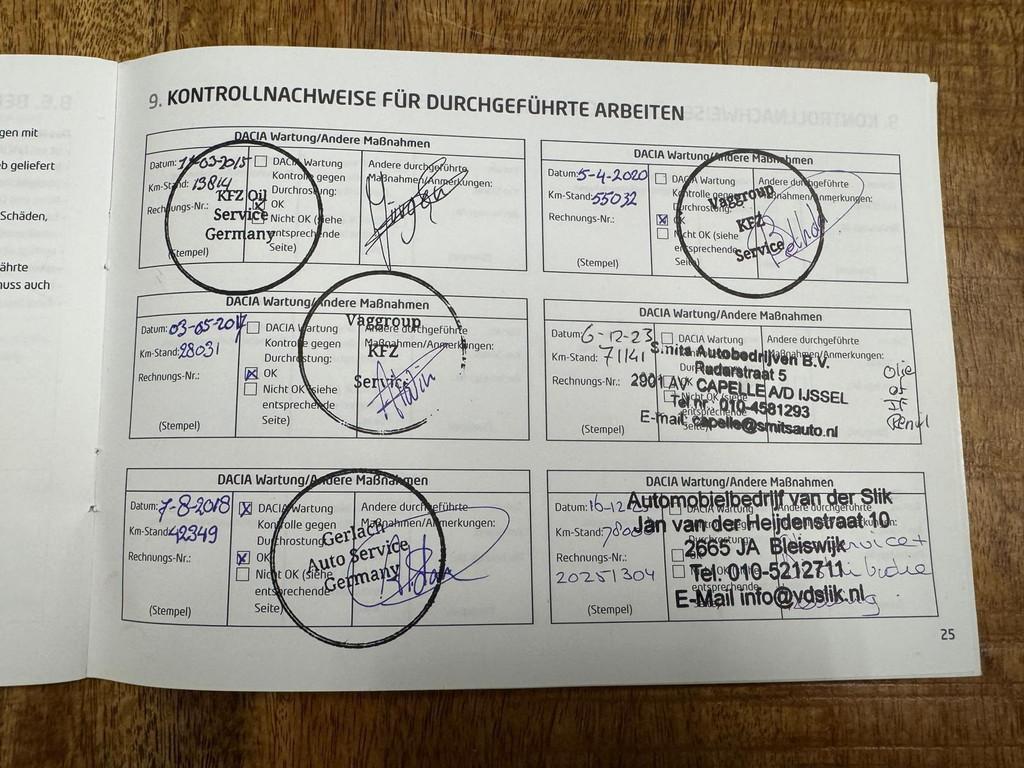 gen mit
b geliefert
Schäden,
ährte
nuss auch
9. KONTROLLNACHWEISE FÜR DURCHGEFÜHRTE ARBEITEN
DACIA Wartung/Andere Maßnahmen
Datum: -03-2015
Km-Stand: 13814
Rechnungs-Nr.:
(Stempel)
DACIA Wartung
Kontrolle gegen
Durchrostung:
OK
Nicht OK (siehe
entsprechende
Seite)
Andere durchgeführte
Maßnahmen/Anmerkungen:
KFZ Oil
Service
Germany
DACIA Wartung/Andere Maßnahmen
Datum: 03-05-2017
Km-Stand: 28031
Rechnungs-Nr.:
(Stempel)
DACIA Wartung
Kontrolle gegen
Durchrostung:
OK
Nicht OK (siehe
entsprechende
Seite)
Andere durchgeführte
Maßnahmen/Anmerkungen:
Vaggroup
KFZ
Service
DACIA Wartung/Andere Maßnahmen
Datum: 7-8-2018
Km-Stand: 42349
Rechnungs-Nr.:
(Stempel)
DACIA Wartung
Kontrolle gegen
Durchrostung:
OK
Nicht OK (siehe
entsprechende
Seite)
Andere durchgeführte
Maßnahmen/Anmerkungen:
Gerlach
Auto Service
Germany
DACIA Wartung/Andere Maßnahmen
Datum: 5-4-2020
Km-Stand: 55032
Rechnungs-Nr.:
(Stempel)
DACIA Wartung
Kontrolle gegen
Durchrostung:
OK
Nicht OK (siehe
entsprechende
Seite)
Andere durchgeführte
Maßnahmen/Anmerkungen:
Vaggroup
KFZ
Service
DACIA Wartung/Andere Maßnahmen
Datum: 6-12-23
Km-Stand: 71141
Rechnungs-Nr.:
(Stempel)
Andere durchgeführte
Maßnahmen/Anmerkungen:
Smits Autobedrijven B.V.
Ruderstraat 5
2901 AV CAPELLE A/D IJSSEL
Tel nr : 010-4581293
E-mail: capelle@smitsauto.nl
Olie
DACIA Wartung/Andere Maßnahmen
Datum: 16-12
Km-Stand:
Rechnungs-Nr.:
20251304
(Stempel)
Automobielbedrijf van der Slik
Jan van der Heijdenstraat 10
2665 JA Bleiswijk
Tel. 010-5212711
E-Mail info@vdslik.nl
25